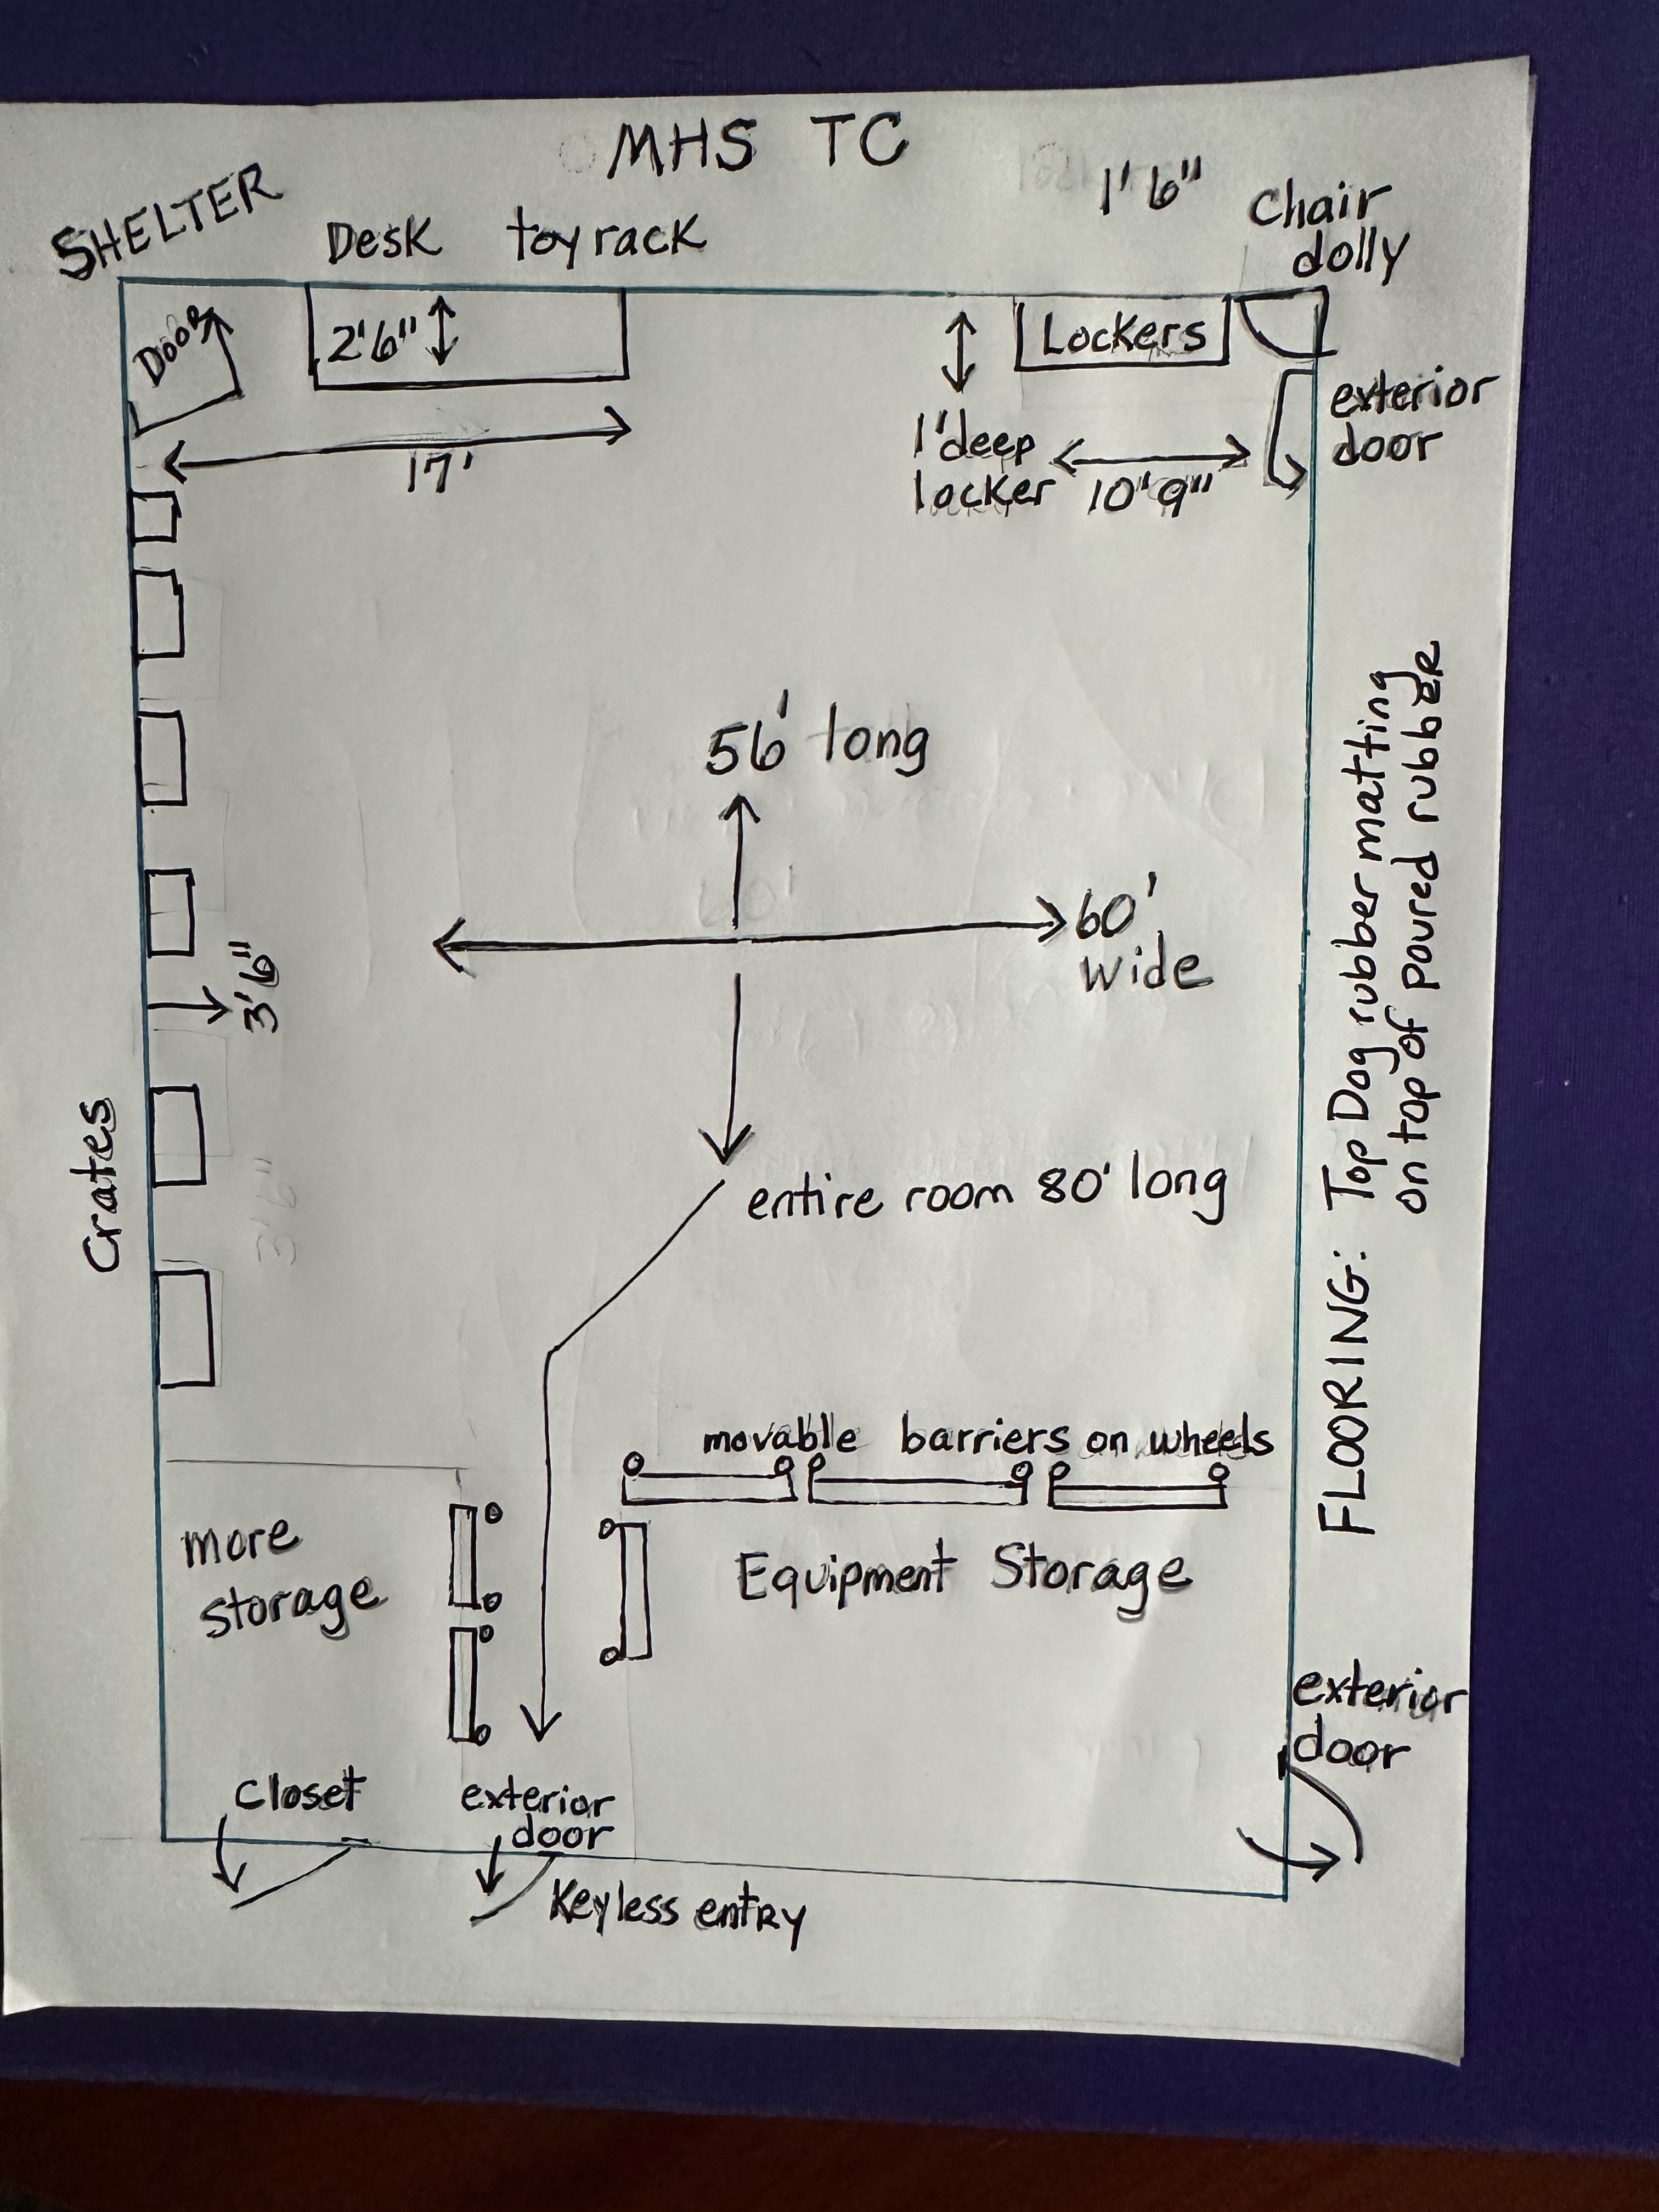 MHS TC
SHELTER
Desk toy rack
1' 6"
Chair
dolly
DOOR
2'6"
Lockers
exterior
door
17'
1' deep
locker
10" 9"
56' long
60'
wide
3'6"
Crates
3'6"
entire room 80' long
FLOORING: Top Dog rubber matting
on top of poured rubber
movable barriers on wheels
more
storage
Equipment Storage
exterior
door
Closet
exterior
door
Keyless entry